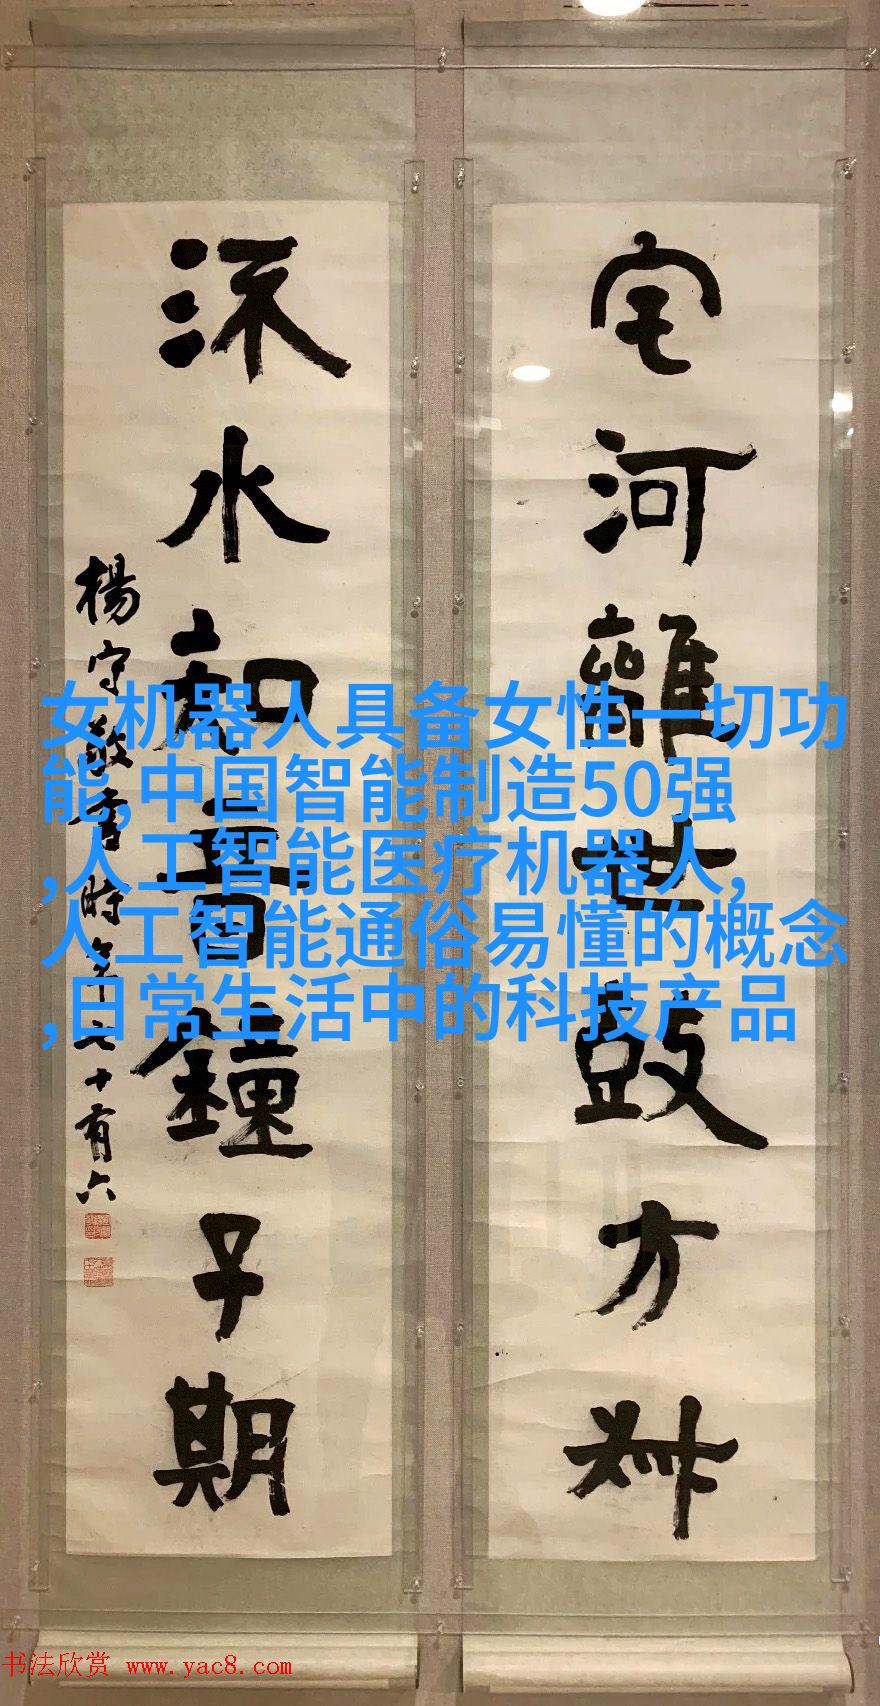 宅河離世鼓方叔
流水知音鐘子期
楊守敬書時年七十有六
女机器人具备女性一切功
能,中国智能制造50强
,人工智能医疗机器人,
人工智能通俗易懂的概念
,日常生活中的科技产品
书法欣赏 www.yac8.com